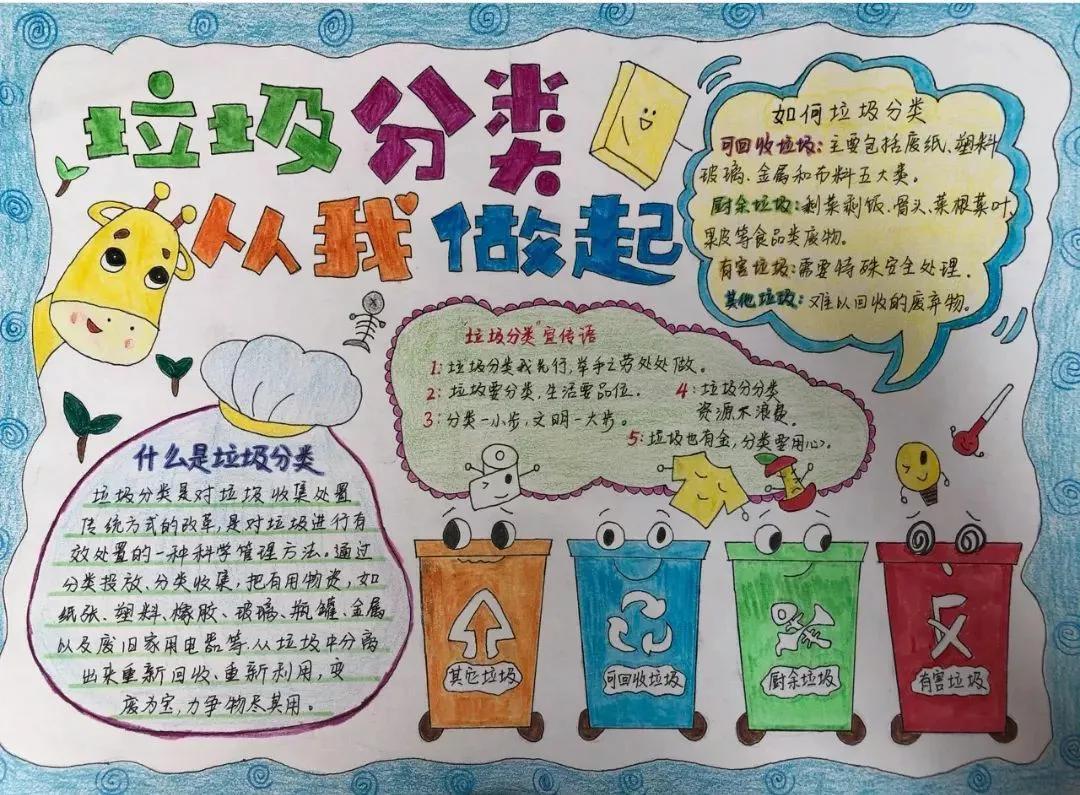 垃圾分类
从我做起
如何垃圾分类
可回收垃圾:主要包括废纸、塑料
玻璃、金属和布料五大类。
厨余垃圾:剩菜剩饭、骨头、菜根菜叶、
果皮等食品类废物。
有害垃圾:需要特殊安全处理.
其他垃圾:难以回收的废弃物。
"垃圾分类"宣传语
1:垃圾分类我先行,举手之劳处处做。
2:垃圾要分类,生活要品位.
3:分类一小步,文明一大步。
4:垃圾分分类
资源不浪费.
5:垃圾也有金,分类要用心.
什么是垃圾分类
垃圾分类是对垃圾收集处置
传统方式的改革,是对垃圾进行有
效处置的一种科学管理方法.通过
分类投放、分类收集,把有用物资,如
纸张、塑料、橡胶、玻璃、瓶罐、金属
以及废旧家用电器等.从垃圾中分离
出来重新回收、重新利用,变
废为宝,力争物尽其用。
其它垃圾
可回收垃圾
厨余垃圾
有害垃圾